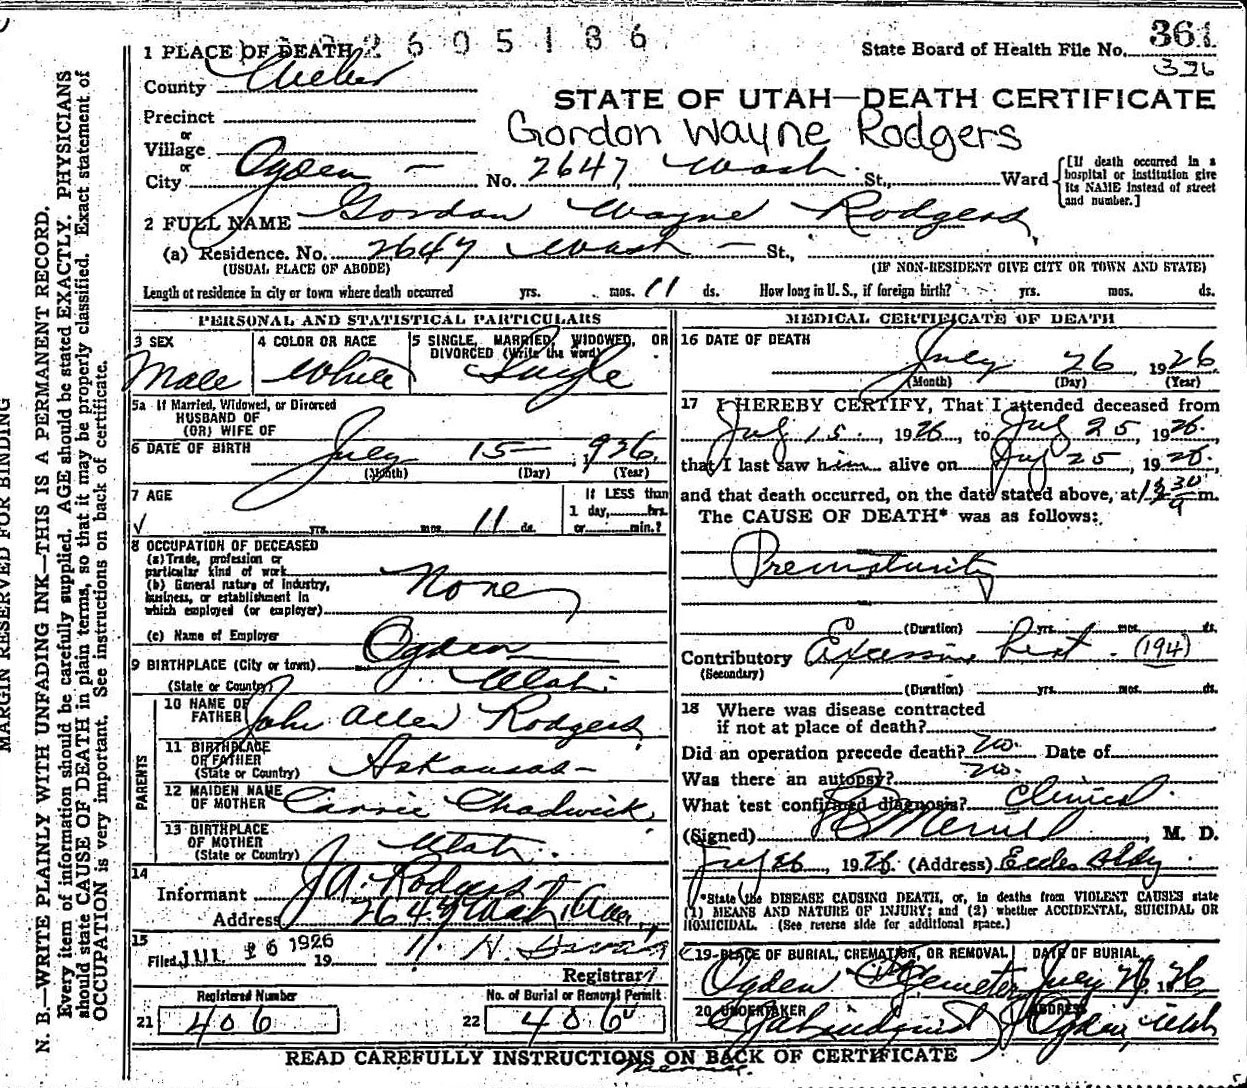 2605186
1 PLACE OF DEATH
State Board of Health File No. 361
326
County Weber
STATE OF UTAH—DEATH CERTIFICATE
Precinct
Gordon Wayne Rodgers
or
Village
or
City Ogden — No. 2647 Wash. St., Ward {[If death occurred in a hospital or institution give its NAME instead of street and number.]
2 FULL NAME Gordon Wayne Rodgers
(a) Residence. No. 2647 Wash — St.,
(USUAL PLACE OF ABODE) (IF NON-RESIDENT GIVE CITY OR TOWN AND STATE)
Length of residence in city or town where death occurred yrs. mos. 11 ds. How long in U. S., if foreign birth? yrs. mos. ds.
PERSONAL AND STATISTICAL PARTICULARS
3 SEX 4 COLOR OR RACE 5 SINGLE, MARRIED, WIDOWED, OR
DIVORCED (Write the word)
Male White Single
5a If Married, Widowed, or Divorced
HUSBAND OF
(OR) WIFE OF
6 DATE OF BIRTH July 15— 1926.
(Month) (Day) (Year)
7 AGE If LESS than
1 day, hrs.
yrs. mos. 11 ds. or min.?
8 OCCUPATION OF DECEASED
(a) Trade, profession or
particular kind of work
None
(b) General nature of industry,
business, or establishment in
which employed (or employer)
(c) Name of Employer
9 BIRTHPLACE (City or town) Ogden
(State or Country) Utah.
PARENTS
10 NAME OF
FATHER John Allen Rodgers
11 BIRTHPLACE
OF FATHER
(State or Country) Arkansas—
12 MAIDEN NAME
OF MOTHER Carrie Chadwick
13 BIRTHPLACE
OF MOTHER
(State or Country) Utah.
14
Informant J. A. Rodgers
Address 2647 Wash. Ave.
15
Filed JUL 26 1926 19
Registrar
Registered Number No. of Burial or Removal Permit
21 406 22 406
MEDICAL CERTIFICATE OF DEATH
16 DATE OF DEATH
July 26 1926
(Month) (Day) (Year)
17 I HEREBY CERTIFY, That I attended deceased from
July 15, 1926, to July 25, 1926.
that I last saw him alive on July 25, 1926.
and that death occurred, on the date stated above, at m.
The CAUSE OF DEATH* was as follows:
Prematurity
(Duration) yrs. mos. ds.
Contributory Excessive heat. (194)
(Secondary)
(Duration) yrs. mos. ds.
18 Where was disease contracted
if not at place of death?
Did an operation precede death? No. Date of
Was there an autopsy? No.
What test confirmed diagnosis? Clinical.
(Signed) Merrill, M. D.
July 26, 1926. (Address) Eccles Bldg.
*State the DISEASE CAUSING DEATH, or, in deaths from VIOLENT CAUSES state
(1) MEANS AND NATURE OF INJURY; and (2) whether ACCIDENTAL, SUICIDAL OR
HOMICIDAL. (See reverse side for additional space.)
19 PLACE OF BURIAL, CREMATION, OR REMOVAL DATE OF BURIAL
Ogden City Cemetery July 26, 1926
20 UNDERTAKER ADDRESS
Lindquist Ogden, Utah
READ CAREFULLY INSTRUCTIONS ON BACK OF CERTIFICATE
MARGIN RESERVED FOR BINDING
N. B.—WRITE PLAINLY WITH UNFADING INK—THIS IS A PERMANENT RECORD.
Every item of information should be carefully supplied. AGE should be stated EXACTLY. PHYSICIANS
should state CAUSE OF DEATH in plain terms, so that it may be properly classified. Exact statement of
OCCUPATION is very important. See instructions on back of certificate.